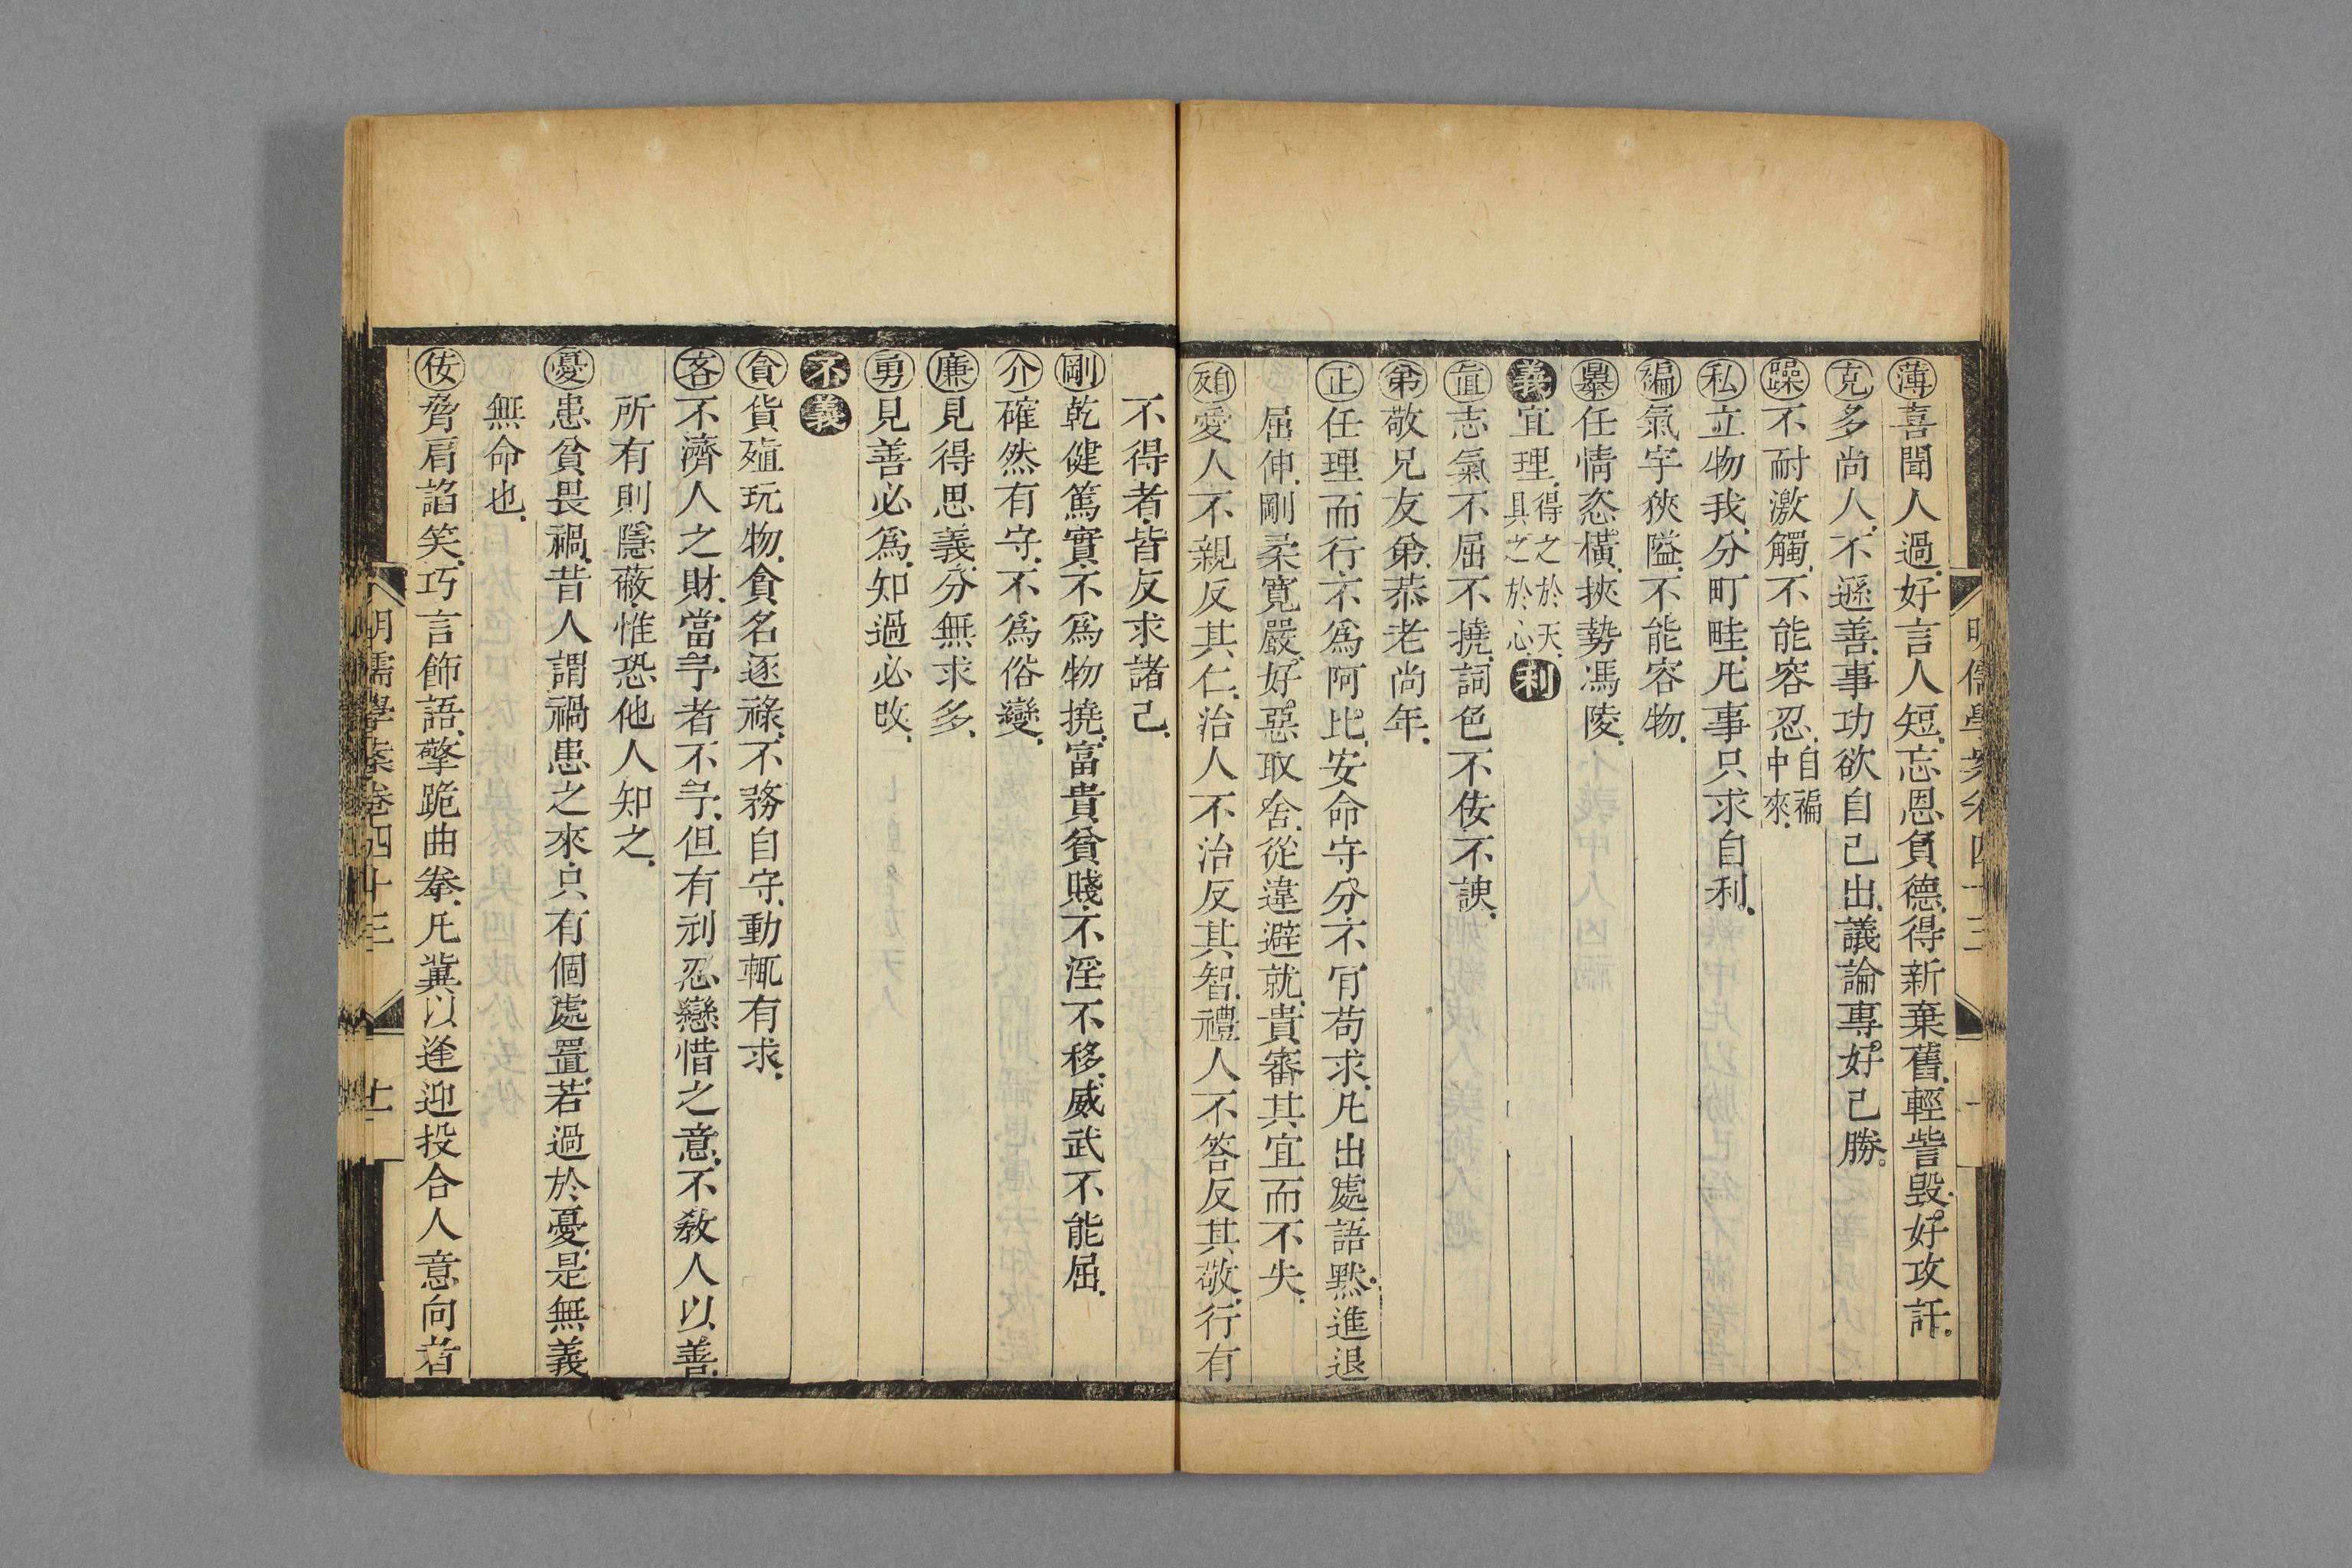 薄喜聞人過好言人短忘恩負德得新棄舊輕訾毀好攻訐
克多尚人不遜善事功欲自己出議論專好己勝
躁不耐激觸不能容忍自褊中來
私立物我分町畦凡事只求自利
褊氣宇狹隘不能容物
暴任情恣橫挾勢馮陵
義宜理得之於天具之於心利
直志氣不屈不撓詞色不佞不諛
弟敬兄友弟恭老尚年
正任理而行不爲阿比安命守分不肎苟求凡出處語默進退
屈伸剛柔寬嚴好惡取舍從違避就貴審其宜而不失
愛人不親反其仁治人不治反其智禮人不答反其敬行有
不得者皆反求諸己
剛乾健篤實不爲物撓富貴貧賤不淫不移威武不能屈
介確然有守不爲俗變
廉見得思義分無求多
勇見善必爲知過必改
不義
貪貨殖玩物貪名逐祿不務自守動輒有求
吝不濟人之財當予者不予但有刓忍戀惜之意不敎人以善
所有則隱蔽惟恐他人知之
憂患貧畏禍昔人謂禍患之來只有個處置若過於憂是無義
無命也
佞脅肩諂笑巧言飾語擎跪曲拳凡冀以逢迎投合人意向者
明儒學案卷四十三
十一